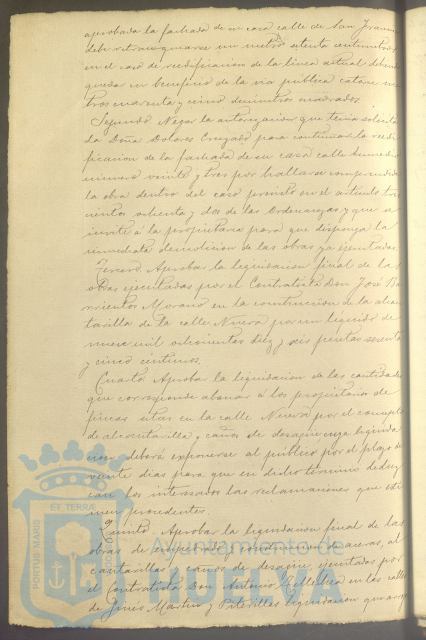 aprobada la fachada de su casa calle de San Fran
debe retranquearse un metro setenta centimetros
en el caso de reedificacion de la linea actual debiendo
quedar en beneficio de la via publica catorce me
tros cuarenta y cinco decimetros cuadrados.
Segundo. Negar la autorizacion que tenia solicita
da Doña Dolores Cruzado para continuar la reedi
ficacion de la fachada de su casa calle
numero veinte y tres por hallarse comprendida
la obra dentro del caso previsto en el articulo tres
cientos ochenta y dos de las Ordenanzas y que se
invite á la propietaria para que disponga la
inmediata demolicion de las obras ya ejecutadas.
Tercero. Aprobar la liquidacion final de las
obras ejecutadas por el Contratista Don José Ba
rrientos Morano en la construccion de la alcan
tarilla de la calle Nueva por un liquido de
nueve mil ochocientas diez y seis pesetas sesenta
y cinco centimos.
Cuarto. Aprobar la liquidacion de las cantidades
que corresponde abonar á los propietarios de
fincas sitas en la calle Nueva por el concepto
de alcantarilla y caños de desagüe cuya liquida
cion deberá exponerse al publico por el plazo de
veinte dias para que en dicho termino deduz
can los interesados las reclamaciones que esti
men procedentes.
Quinto. Aprobar la liquidacion final de las
obras de empedrado, construccion de aceras, al
cantarillas y caños de desagüe, ejecutadas por
el Contratista Don Antonio en las calles
de Ginés Martin y liquidacion que arroja
PORTUS MARIS ET TERRAE
Ayuntamiento de
HUELVA